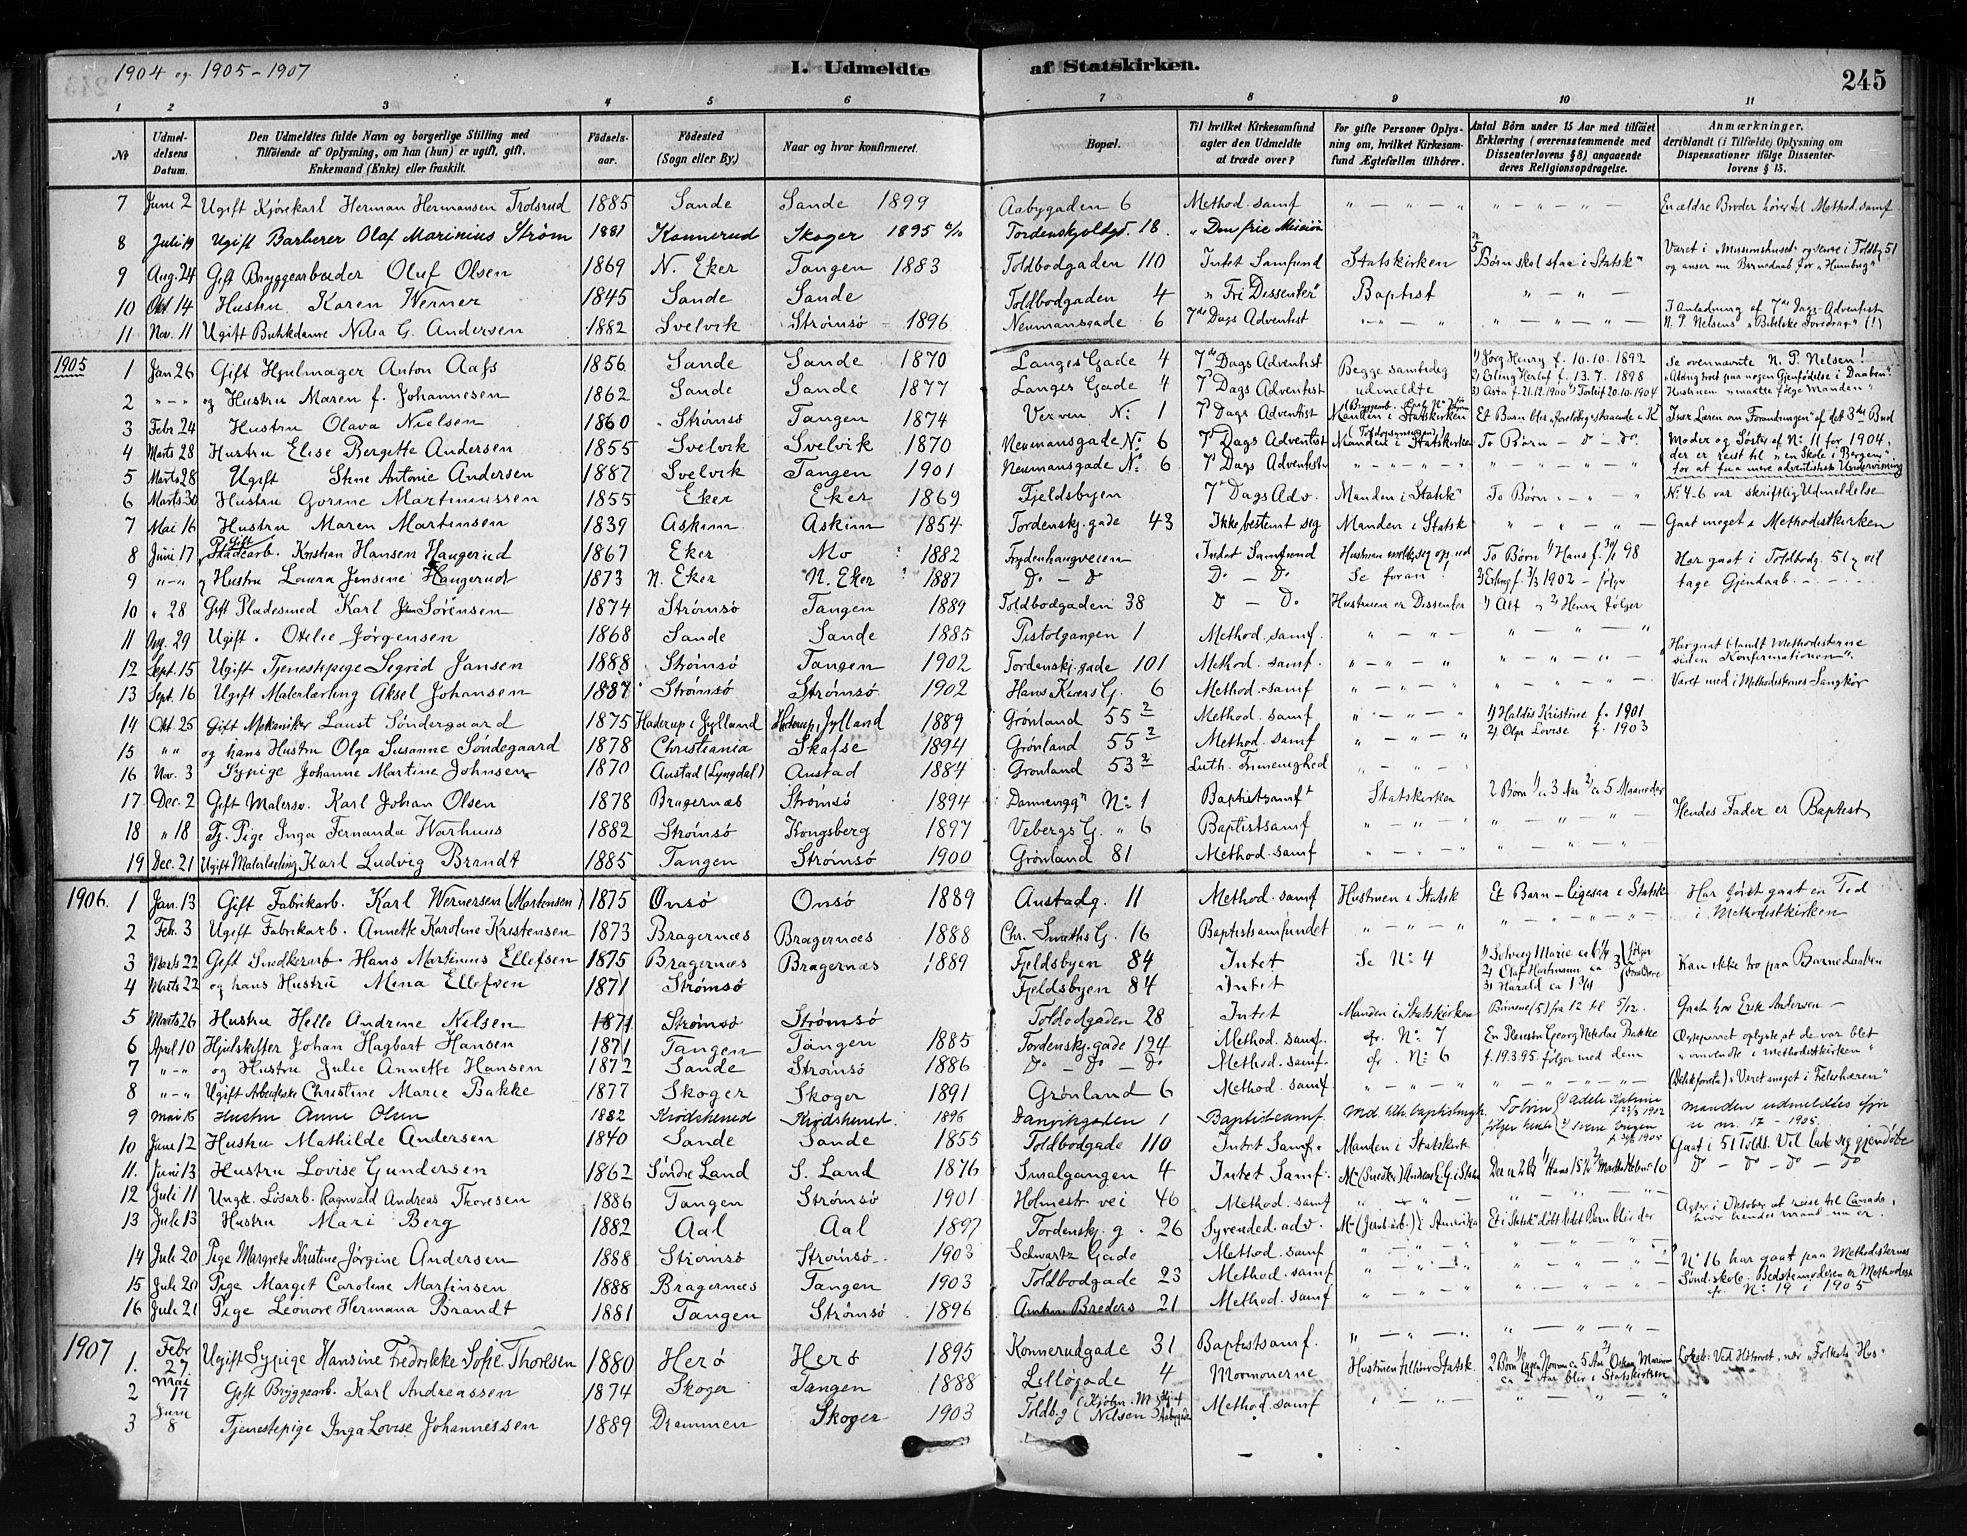 1904 og 1905-1907
I. Udmeldte af Statskirken.
245
1 2 3 4 5 6 7 8 9 10 11
No | Udmeldelsens Datum. | Den Udmeldtes fulde Navn og borgerlige Stilling med Tilföiende af Oplysning, om han (hun) er ugift, gift, Enkemand (Enke) eller fraskilt. | Födsels-aar. | Födested (Sogn eller By.) | Naar og hvor konfirmeret. | Bopæl. | Til hvilket Kirkesamfund agter den Udmeldte at træde over? | For gifte Personer Oplysning om, hvilket Kirkesamfund Ægtefællen tilhörer. | Antal Börn under 15 Aar med tilföiet Erklæring (overensstemmende med Dissenterlovens § 8) angaaende deres Religionsopdragelse. | Anmærkninger, deriblandt (i Tilfælde) Oplysning om Dispensationer ifölge Dissenterlovens § 15.
7 Juni 2 Ugift Kjørekarl Herman Hermansen Trolsrud 1885 Sande Sande 1899 Aabygaden 6 Method. samf. " - " - " " - " - " - En ældre Broder hører til Method. samf.
8 Juli 19 Ugift Barberer Olaf Marinius Strøm 1881 Konnerud Skoger 1895 Tordenskjoldsgd. 18. "Den frie Mission
9 Aug. 24 Gift Bryggearbeider Oluf Olsen 1869 N. Eker Tangen 1883 Toldbodgaden 110 Intet Samfund Statskirken 5 Børn skal staa i Statsk" Været i "Missionshuset" og senere i Toldbg 51 og anser nu Barnedaab for "Humbug"
10 Okt 14 Hustru Karen Werner 1845 Sande Sande Toldbodgaden 4 "Fri Dissenter" Baptist " - " -
11 Nov. 11 Ugift Butikdame Nilia G. Andersen 1882 Svelvik Strømsø - 1896 Neumansgade 6 7de Dags Adventist " - " - " " - " - " I Anledning af 7de Dags Adventist N. P. Nelsens "Bibelske Foredrag" (!)
1905 1 Jan 26 Gift Hjulmager Anton Aass 1856 Sande Sande 1870 Langes Gade 4 7de Dags Adventist Begge samtidig udmeldte 1) Jørg Henry f. 10.10.1892 Se ovennævnte N. P. Nelsen!
2 " - " og Hustru Maren f. Johannesen 1862 Sande Sande 1877 Langes Gade 4 7de Dags Adventist 2) Erling Herlof f. 13.7.1898 3) Asta f. 21.12.1900 4) Torleif 20.10.1904 "Aldrig troet paa nogen Gjenfødelse i Daaben". Hustruen "maatte følge Manden"
3 Febr 24 Hustru Olava Nielsen 1860 Strømsø Tangen 1874 Verven No: 1 7de Dags Adventist Manden i Statskirken Et Barn blir foreløbig staaende i K Især Læren om Forandringen af det 3die Bud
4 Marts 28 Hustru Elise Bergitte Andersen 1855 Svelvik Svelvik 1870 Neumansgade No: 6 7de Dags Adventist Manden i Statskirken To Børn - do - do. Moder og Søster af No: 11 for 1904,
5 Marts 28 Ugift Stine Antonie Andersen 1887 Svelvik Tangen 1901 Neumansgade No: 6 7de Dags Adventist " - " - " " - " - " der er reist til "en Skole i Bergen" for at faa mere adventistisk Undervisning
6 Marts 30 Hustru Gorine Martiniussen 1855 Eker Eker 1869 Fjeldsbyen 7de Dags Adv. Manden i Statsk" To Børn " - " No 4-6 var skriftlig Udmeldelse
7 Mai 16 Hustru Maren Martinsen 1839 Askim Askim 1854 Tordenskj. gade 43 Ikke bestemt sig Manden i Statsk " - " - " Gaat meget i Methodistkirken
8 Juni 17 Gift Kristian Hansen Haugerud 1867 Eker Mo 1882 Frydenhaugveien Intet Samfund To Børn 1) Hans f. 98 Har gaat i Toldbodg. 51, vil tage Gjendaab - - -
9 " - " og Hustru Laura Jensine Haugerud 1873 N. Eker N. Eker 1887 Do - Do Do - Do. Se foran! 2) Erling f. 1902 - følger
10 " 28 Gift Pladesmed Karl Johan Sørensen 1874 Strømsø Tangen 1889 Toldbodgaden 38 Do - Do. Hustruen er Dissenter 1) Alf " 2) Henry følger
11 Aug. 29 Ugift. Otelie Jørgensen 1868 Sande Sande 1885 Pistolgangen 1 Method. samf. " - " - " " - " - "
12 Sept. 15 Ugift Tjenestepige Sigrid Jansen 1888 Strømsø Tangen 1902 Tordenskj. gade 101 Method. samf. " - " - " " - " - " Har gaat blandt Methodisterne siden Konfirmationen".
13 Sept. 16 Ugift Malerlærling Aksel Johansen 1887 Strømsø Strømsø 1902 Hans Kiærs G. 6 Method. samf " - " - " " - " - " Været med i Methodisternes Sangkor
14 Okt 25 Gift Mekaniker Laust Søndergaard 1875 Haderup i Jylland Haderup i Jylland 1889 Grønland 55 2 Method. samf " - " - " 1) Haldis Kristine f. 1901
15 " " og hans Hustru Olga Susanne Søndegaard 1878 Christiania Skafse 1894 Grønland 55 2 Method. samf " - " - " 2) Olga Lovise f. 1903
16 Nov. 3 Sypige Johanne Martine Johnsen 1870 Austad (Lyngdal) Austad 1884 Grønland 53 2 Luth. Frimenighed " - " - "
17 Dec. 2 Gift Malersv. Karl Johan Olsen 1878 Bragernæs Strømsø 1894 Dannevigg" No: 1 Baptistsamft Statskirken 2 Børn 1) ca 3 Aar 2) ca 5 Maaneder
18 " 18 Tj. Pige Inga Fernanda Warhuus 1882 Strømsø Kongsberg 1897 Vebergs G. " 6 Baptistsamf " - " - " " - " - " Hendes Fader er Baptist
19 Dec. 21 Ugift Malerlærling Karl Ludvig Brandt 1885 Tangen Strømsø 1900 Grønland 81 Method. samf " - " - " " - " - "
1906. 1 Jan. 13 Gift Fabrikarb. Karl Wernersen (Martensen) 1875 Onsø Onsø 1889 Austadg. 11 Method. samf Hustruen i Statsk Et Barn - Ligesaa i Statsk Har først gaat en Tid i Methodistkirken
2 Feb. 3 Ugift Fabrikarb. Annette Karoline Kristensen 1873 Bragernæs Bragernæs 1888 Chr. Smiths G. 16 Baptistsamfundet " - " - " " - " - "
3 Marts 22 Gift Snedkerarb. Hans Martinius Ellefsen 1875 Bragernæs Bragernæs 1889 Fjeldsbyen 84 Intet Se No: 4 1) Solveig Marie 2) Olaf Hartmann ca 3 3) Harald ca 1 3/4 følger Forældrene Kan ikke tro paa Barnedaaben
4 Marts 22 og hans Hustru Mina Ellefsen 1871 Strømsø Fjeldsbyen 84 Intet
5 Marts 26 Hustru Helle Andrine Nilsen 1871 Strømsø Strømsø Toldbodgaden 28 Intet Manden i Statskirken Børnene (5) fra 12 til 5/12. Gaat hos Erik Andersen -
6 April 10 Hjulskifter Johan Hagbart Hansen 1871 Tangen Tangen 1885 Tordenskj. gade 124 Method. samf. cfr. No: 7 En Pleiesøn Georg Nikolai Bakke Ægteparret oplyste at de var blet
7 " - " og Hustru Julie Annette Hansen 1872 Sande Strømsø 1886 Do - Do - Do Method. samf. cfr. No: 6 f. 19.3.95. følger med dem "omvendte i Methodistkirken"
8 " - " Ugift Arbeiderske Christine Marie Bakke 1877 Skoger Skoger 1891 Grønland 6 Method. samf. " - " - " " - " - " "Været meget i Frelseshæren"
9 Mai 15 Hustru Anne Olsen 1882 Krødsherred Krødsherred 1896 Danvikgaden 1 Baptistsamf. To børn følger 1) Adele Katrine 1902 2) f. 1905 Manden udmeldtes ifjor se nr. 17 - 1905.
10 Juni 12 Hustru Mathilde Andersen 1840 Sande Sande 1855 Toldbodgade 110 Intet Samf. Manden i Statskirk Gaat i 51 Toldb. Vil lade sig gjendøbe
11. Juni 13 Hustru Lovise Gundersen 1862 Søndre Land S. Land 1876 Smalgangen 4 Intet Samf. Do - Do - Do - Do
12 Juli 11 Ungk. Løsarb. Ragnvald Andreas Thoresen 1886 Tangen Strømsø 1901 Holmestr vei 46 Method. samf " - " - " " - " - "
13 Juli 13 Hustru Mari Berg 1882 Aal Aal 1897 Tordenskj. g. 26 Syvended. adv. i Amerika Et i Statsk" døbt lidet Barn blir der Agter i Oktober at reise til Canada, hvor hendes mand nu er.
14 Juli 20 Pige Margrete Kristine Jørgine Andersen 1888 Strømsø Strømsø 1903 Schwartz Gade Method. samf " - " - " " - " - "
15 Juli 20 Pige Marget Caroline Martinsen 1888 Bragernæs Tangen 1903 Toldbodgade 23 Method. samf " - " - " " - " - " No 16 har gaat paa Methodisternes Sønd.skole. Bedstemoderen er Methodist
16 Juli 21 Pige Leonore Hermana Brandt 1881 Tangen Strømsø 1896 21 Method. samf " - " - " " - " - " cfr. No: 19 i 1905
1907 1. Febr 27 Ugift Sypige Hansine Fredrikke Sofie Thoresen 1880 Herø Herø 1895 Konnerudgade 31 Baptistsamf. " - " - " " - " - "
2 Mai 17 Gift Bryggearb. Karl Andreassen 1874 Skoger Tangen 1888 Lilløgade 4 Mormonerne Hustruen tilhører Statsk. ca 2 Aar blir i Statskirken
3 Juni 8 Tjenestepige Inga Lovise Johannessen 1889 Drammen Skoger 1903 Toldb.g Method. samf " - " - "